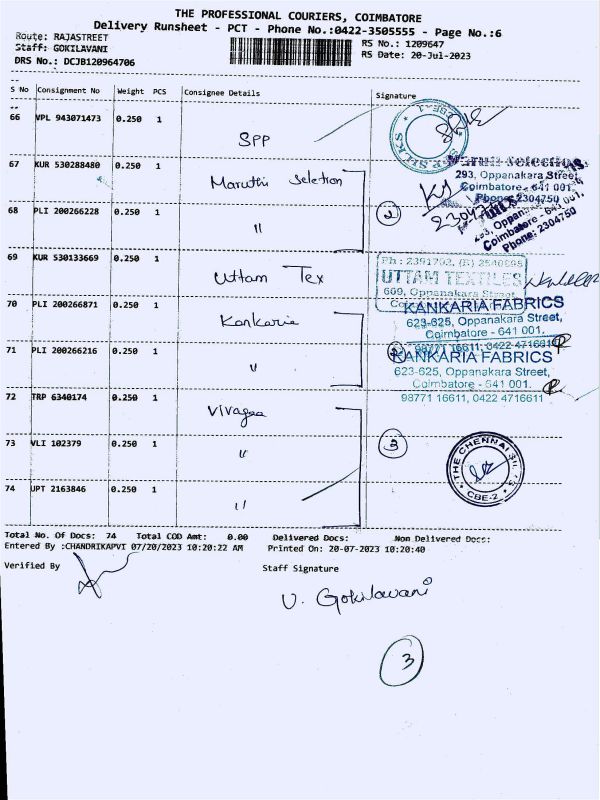 THE PROFESSIONAL COURIERS, COIMBATORE
Delivery Runsheet - PCT - Phone No.:0422-3505555 - Page No.:6
Route: RAJASTREET
RS No.: 1209647
Staff: GOKILAVANI
RS Date: 20-Jul-2023
DRS No.: DCJB120964706
S No Consignment No Weight PCS Consignee Details Signature
66 VPL 943071473 0.250 1 SPP
67 KUR 530288480 0.250 1 Maruthi Seletion
68 PLI 200266228 0.250 1 "
69 KUR 530133669 0.250 1 Uttam Tex
70 PLI 200266871 0.250 1 Kankaria
71 PLI 200266216 0.250 1 "
72 TRP 6340174 0.250 1 Vivagaa
73 VLI 102379 0.250 1 "
74 UPT 2163846 0.250 1 "
CBE-1
SILKS
Maruti Selections
293, Oppanakara Street,
Coimbatore - 641 001.
Phone: 2304750
293, Oppanakara
Coimbatore - 641 001.
Phone: 2304750
2
UTTAM TEXTILES
609, Oppanakara Street
KANKARIA FABRICS
623-625, Oppanakara Street,
Coimbatore - 641 001.
98771 16611, 0422 4716611
KANKARIA FABRICS
623-625, Oppanakara Street,
Coimbatore - 641 001.
98771 16611, 0422 4716611
3
THE CHENNAI SILKS
CBE-2
Total No. Of Docs: 74 Total COD Amt: 0.00 Delivered Docs: Non Delivered Docs:
Entered By :CHANDRIKAPVI 07/20/2023 10:20:22 AM Printed On: 20-07-2023 10:20:40
Verified By Staff Signature
V. Gokilavani
3